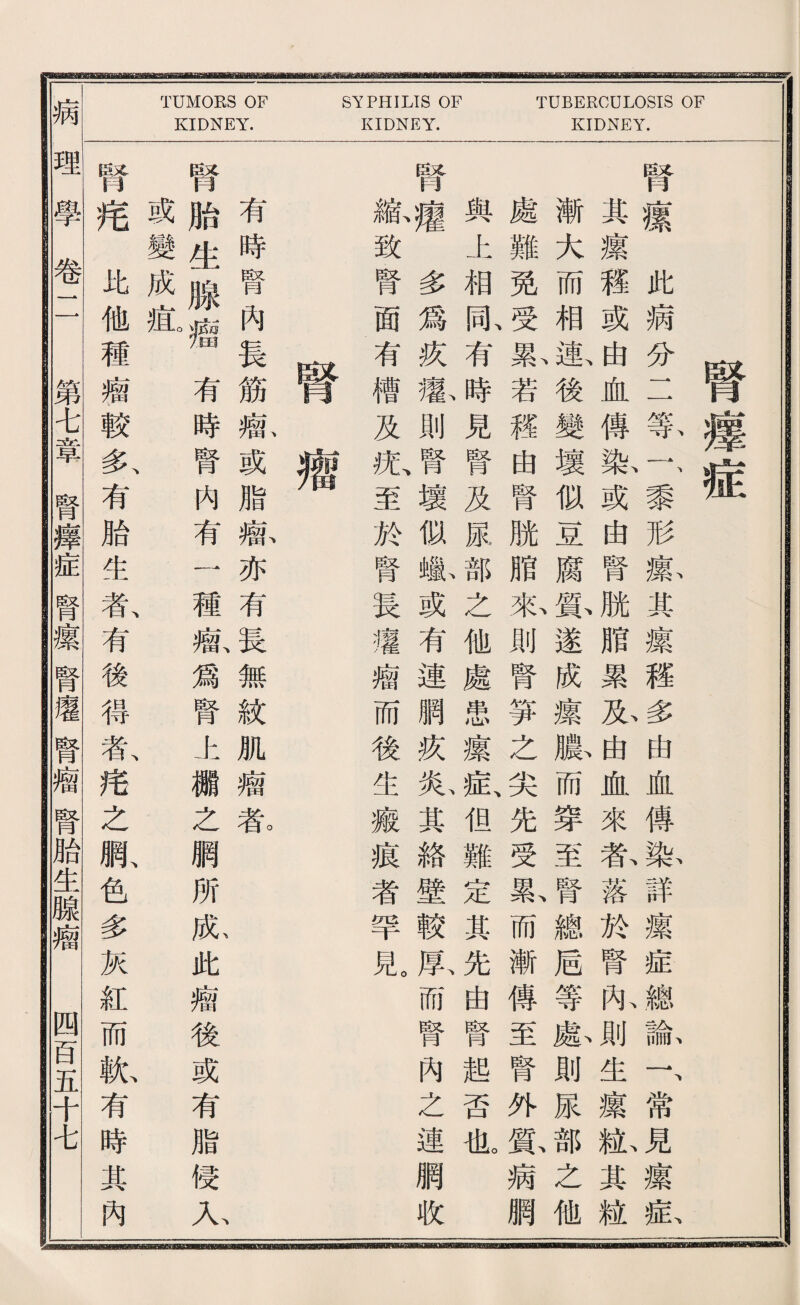 TUBERCULOSIS OF KIDNEY.
SYPHILIS OF KIDNEY.
TUMORS OF KIDNEY.
腎瘰症
腎瘰 此病分二等、一、黍形瘰、其瘰種多由血傳染、詳瘰症總論、一、常見瘰症、
其瘰種或由血傳染、或由腎胱脂累及、由血來者、落於腎內、則生瘰粒、其粒
漸大而相連、後變壞似豆腐質、遂成瘰膿、而穿至腎總巵等處、則尿部之他
處難免受累、若種由腎胱脂來、則腎笋之尖先受累、而漸傳至腎外質、病膶
與上相同、有時見腎及尿部之他處患瘰症、但難定其先由腎起否也。
腎㿗 多爲疚㿗、則腎壞似蠟、或有連膶疚炎、其絡壁較厚、而腎內之連膶收
縮、致腎面有槽及㽬、至於腎長㿗瘤而後生瘢痕者罕見。
腎瘤
有時腎內長筋瘤、或脂瘤、亦有長無紋肌瘤者。
腎胎生腺瘤 有時腎內有一種瘤、爲腎上櫩之膶所成、此瘤後或有脂侵入、
或變成疽。
腎㾃 比他種瘤較多、有胎生者、有後得者、㾃之膶、色多灰紅而軟、有時其內
病理學 卷二 第七章 腎瘰症 腎瘰 腎㿗 腎瘤 腎胎生腺瘤 四百五十七